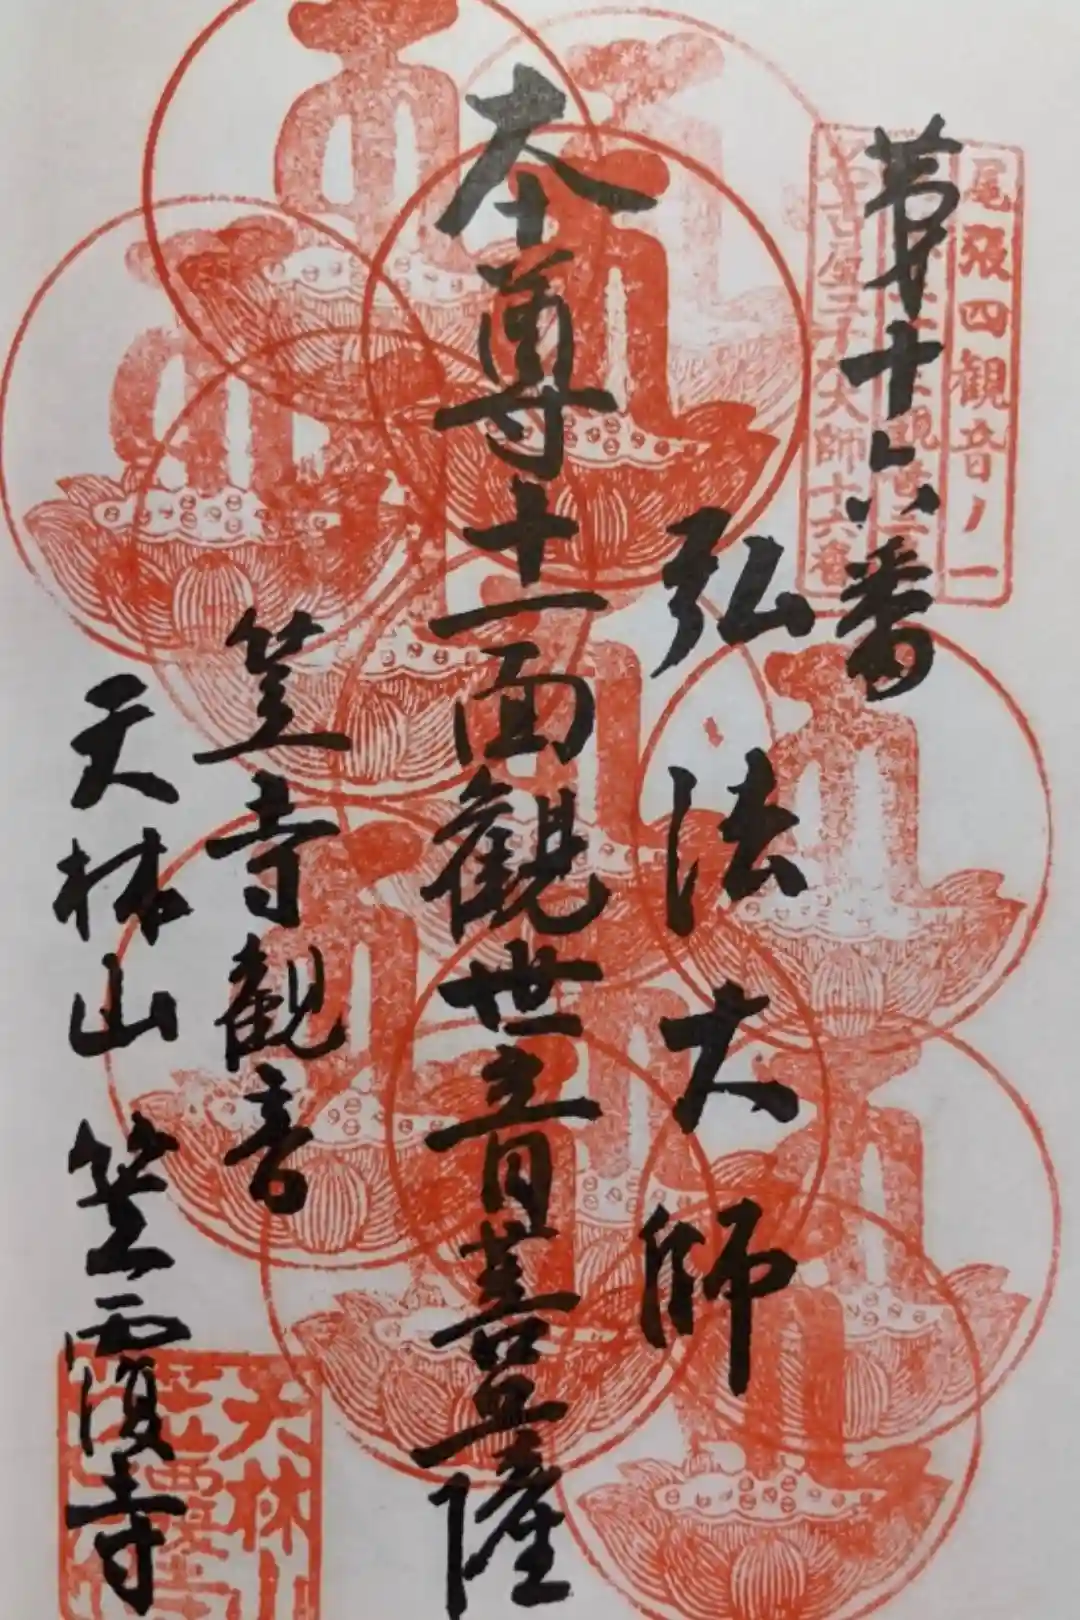 尾張四観音ノ一
第十六番
弘法大師
本尊十一面観世音菩薩
笠寺観音
天林山 笠覆寺
天林山
笠覆寺